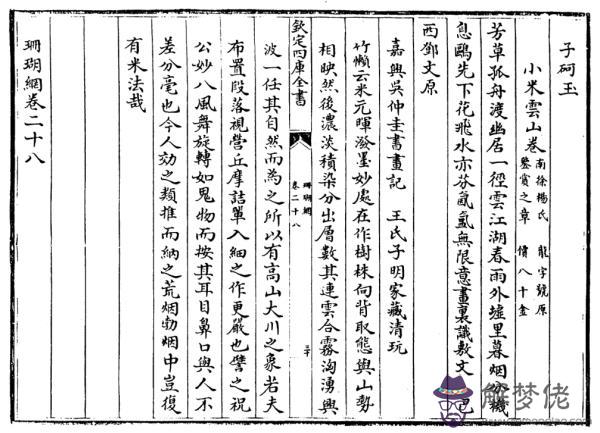 子砢玉
小米雲山卷 南徐楊氏鑒賞之章 龍字號原價八十金
芳草孤舟渡幽居一徑雲江湖春雨外墟里暮烟分機
息鷗先下花飛水亦芬氤氳無限意畫裏識敷文 巴
西鄧文原
嘉興吳仲圭書畫記 王氏子明家藏清玩
竹懶云米元暉潑墨妙處在作樹株向背取態與山勢
相映然後濃淡積染分出層數其連雲合霧洶湧興
欽定四庫全書
珊瑚網
卷二十八
三十
波一任其自然而為之所以有高山大川之象若夫
布置段落視營丘摩詰單入細之作更嚴也譬之祝
公妙八風舞旋轉如鬼物而按其耳目鼻口與人不
差分毫也今人効之類推而納之荒烟勃烟中豈復
有米法哉
珊瑚網卷二十八
解梦佬